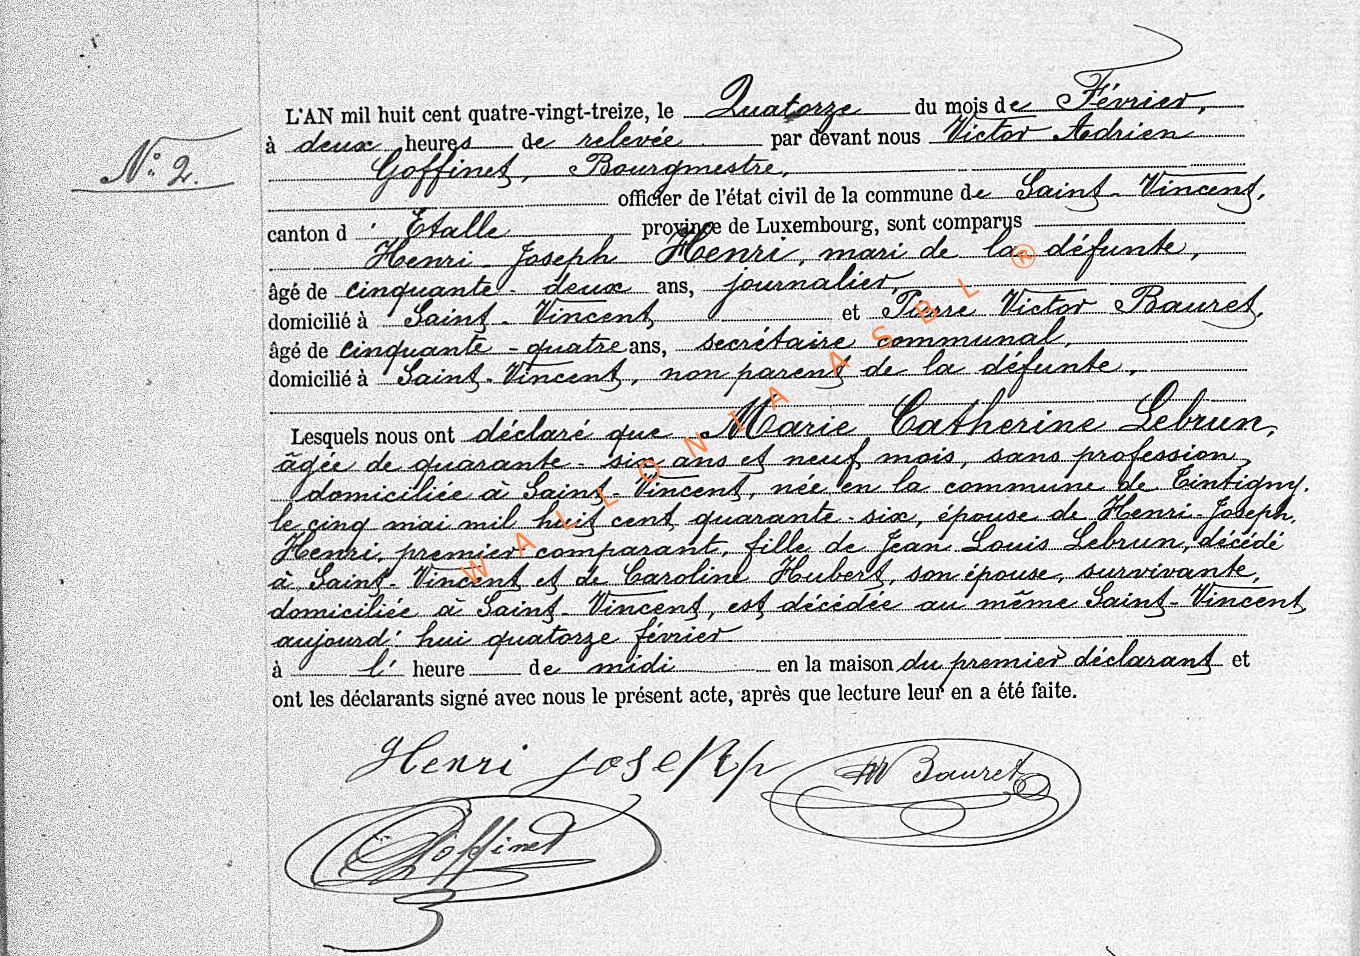 L'AN mil huit cent quatre-vingt-treize, le Quatorze du mois de Février,
à deux heures de relevée par devant nous Victor Adrien
N° 2.
Goffinet, Bourgmestre,
officier de l'état civil de la commune de Saint-Vincent,
canton d'Etalle province de Luxembourg, sont comparus
Henri-Joseph Henri, mari de la défunte,
âgé de cinquante-deux ans, journalier,
domicilié à Saint-Vincent et Pierre Victor Bauret,
âgé de cinquante-quatre ans, secrétaire communal,
domicilié à Saint-Vincent, non parent de la défunte,
Lesquels nous ont déclaré que Marie Catherine Lebrun,
âgée de quarante-six ans et neuf mois, sans profession,
domiciliée à Saint-Vincent, née en la commune de Tintigny,
le cinq mai mil huit cent quarante-six, épouse de Henri-Joseph,
Henri, premier comparant, fille de Jean Louis Lebrun, décédé
à Saint-Vincent et de Caroline Hubert, son épouse, survivante,
domiciliée à Saint-Vincent, est décédée au même Saint-Vincent
aujourd'hui quatorze février
à l' heure de midi en la maison du premier déclarant et
ont les déclarants signé avec nous le présent acte, après que lecture leur en a été faite.
Henri Joseph
Bauret
Goffinet
WALLONIA ASBL ®